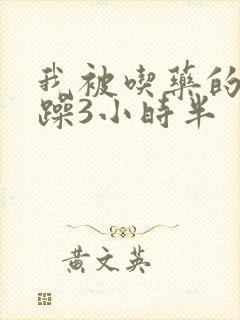 我被喫藥的
躁3小時半
黃文英